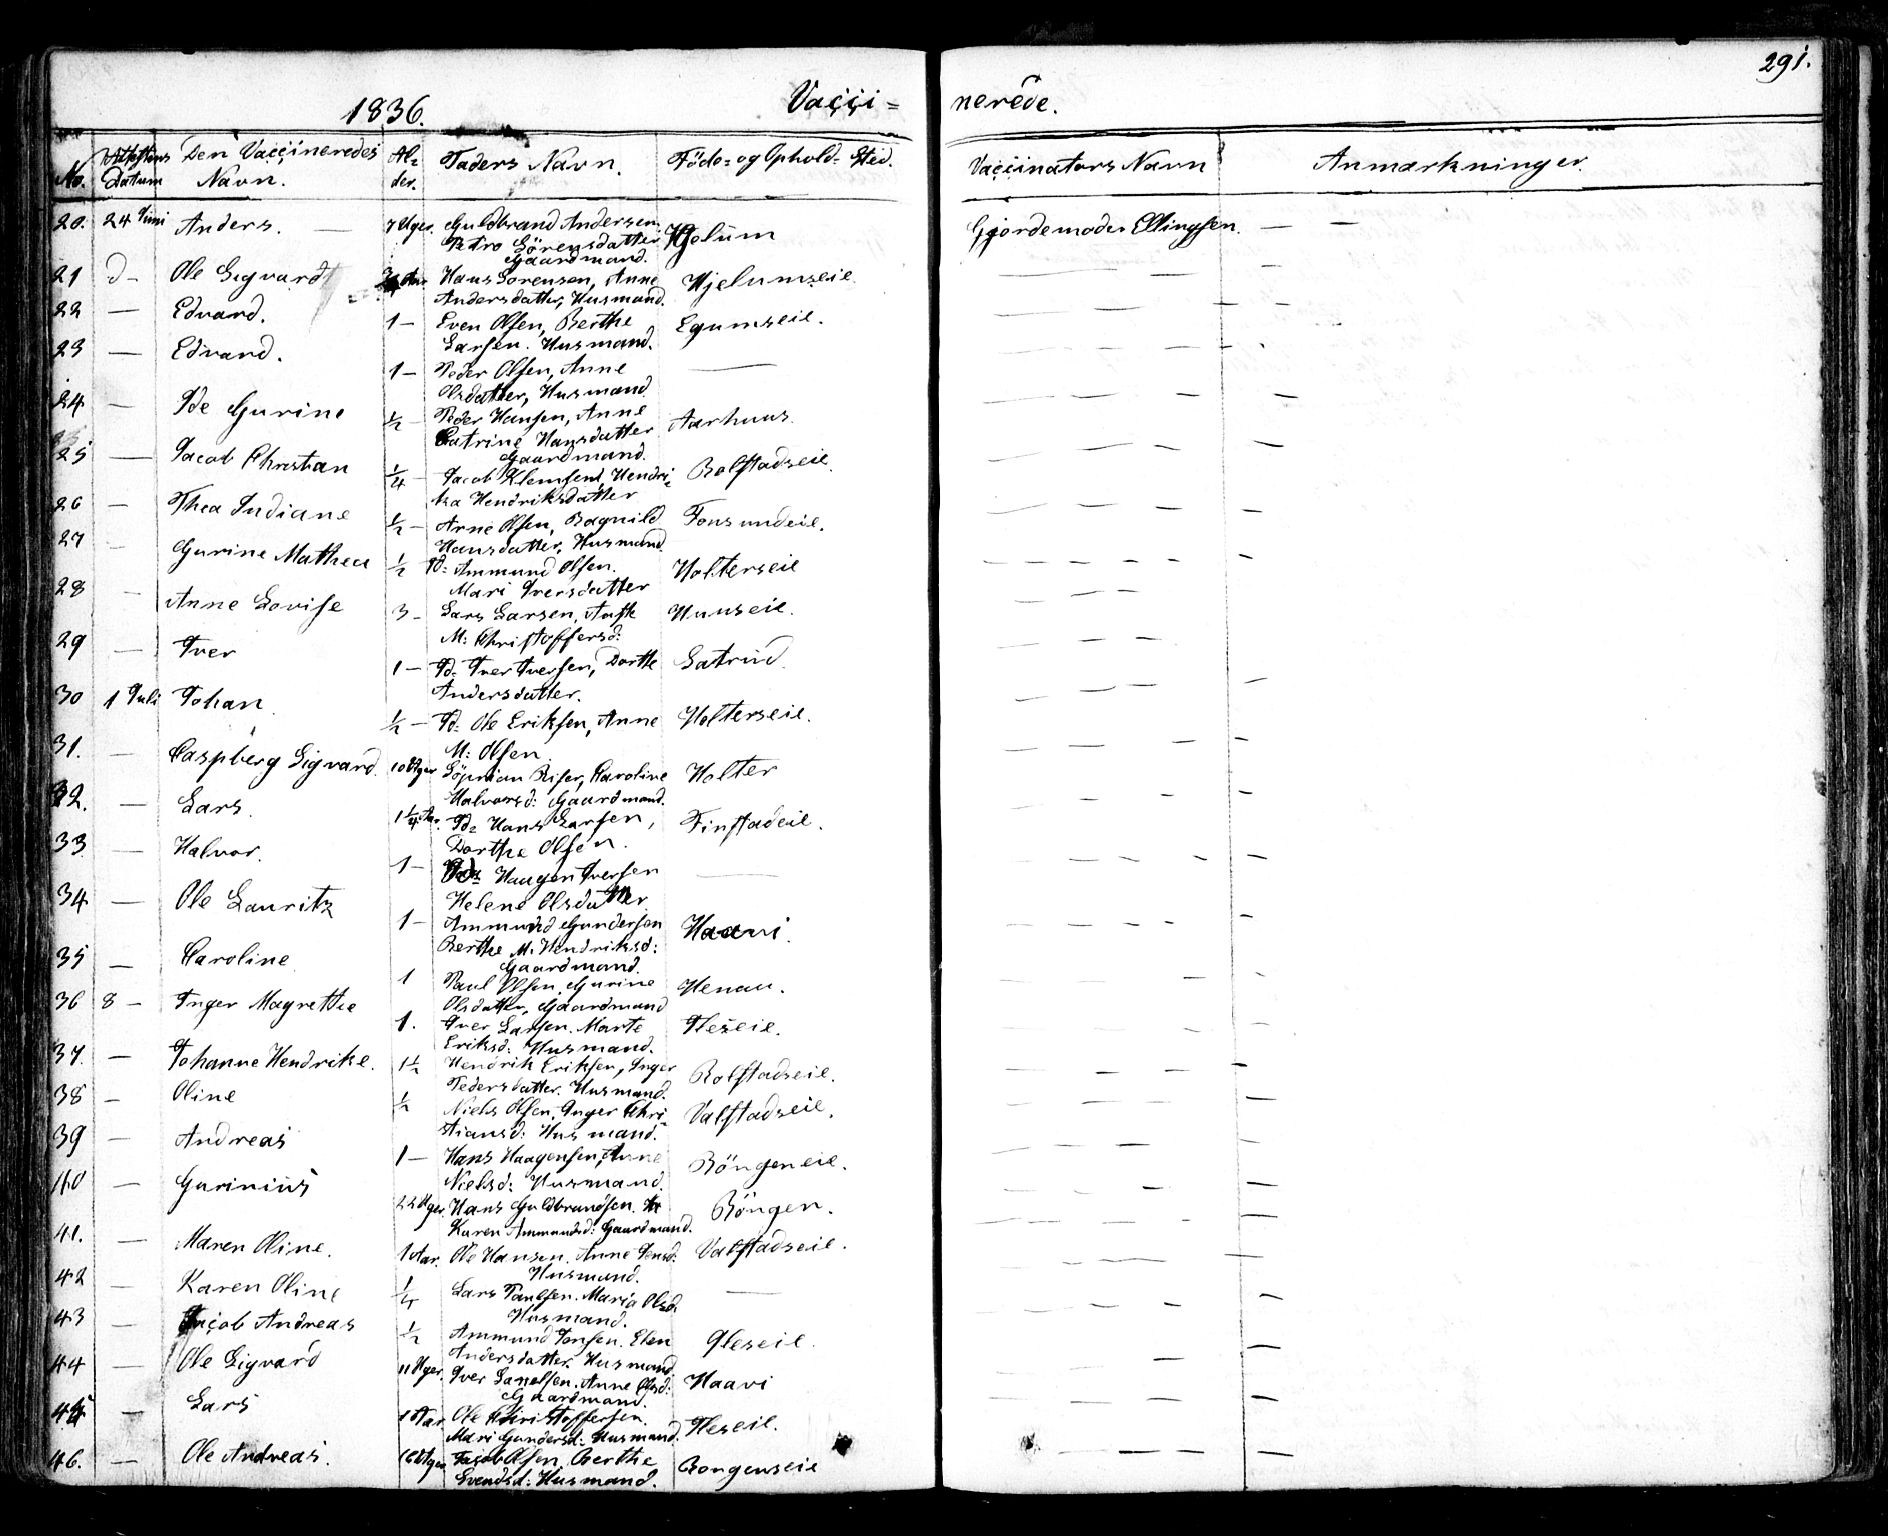 291.
1836. Vaççi= nerede.
No. Attestens Datum Den Vaççineredes Navn. Al= der. Faders Navn. Föde- og Ophold= Sted. Vaççinators Navn Anmærkninger.
20. 24 Juni Anders. — 7 Uger. Guldbrand Andersen Hjelum Gjordemoder Ellingsen. — —
Sörensdatter
Gaardmand.
21 d- Ole Sigvard Aar Hans Sorensen, Anne Hjelumseie.
Andersdatter, Husmand.
22 — Edvard. 1 — Even Olsen, Berthe Egumseie.
Larsen. Husmand.
23 — Edvard. 1 — Peder Olsen, Anne —
Olsdatter, Husmand.
24 — Ide Gurine ½ — Peder Hansen, Anne Aarhuus.
Catrine Hansdatter
Gaardmand.
25 — Jacob Christian ¼ — Jacob Klemsen, Hendri= Rolfstadseie.
ka Hendriksdatter
26 — Thea Indiane ½ — Arne Olsen, Ragnild Fonsundeie.
Hansdatter, Husmand.
27 — Gurine Mathea ½ Pd: Ammund Olsen. Holterseie
Mari Iversdatter
28 — Anne Lovise 3 — Lars Larsen, Huuseie.
M: Christoffersd:
29 — Iver 1 — Pd: Iver Iversen, Dorthe Latrud.
Andersdatter.
30 1 Juli Johan ½ — Pd: Ole Eriksen, Anne Holterseie.
M: Olsen
31. — Caspberg Sigvard. 10 Uger Riser, Caroline Holter
Halvorsd: Gaardmand.
32. — Lars. 1¼ Aar. Pd: Hans Larsen, Finstadeie.
Dorthe Olsen.
33 — Halvor. 1 — Pd: Haagen Iversen —
Helene Olsdatter
34 — Ole Lauritz 1 — Ammund Gundersen Haavi.
Berthe M: Hendriksd:
Gaardmand.
35 — Caroline 1 Paul Olsen, Gurine Henau.
Olsdatter, Gaardmand
36 8 — Inger Magrethe 1. Iver Larsen. Marte Fleseie.
Eriksd: Husmand.
37. — Johanne Hendrike. 1½ Hendrik Eriksen, Inger Rolfstadseie.
Pedersdatter. Husmand.
38 — Oline ½ Niels Olsen, Inger Chri= Valstadseie.
stiansd: Husmand.
39 — Andreas 1 — Hans Haagensen, Anne Röngeneie.
Nielsd: Husmand.
40 — Gurinius 22 Uger. Hans Guldbrandsen. Röngen.
Karen Ammundsd: Gaardmand.
41. — Maren Oline. 1 Aar. Ole Hansen. Anne Jensd: Valstadseie.
Husmand.
42 — Karen Oline ¼ Lars Paulsen. Maria Olsd. —
Husmand.
43 — Jacob Andreas ½ Ammund Jensen. Elen Fleseie.
Andersdatter. Husmand
44 — Ole Sigvard 11 Uger. Iver Anne Olsd: Haavi
Gaardmand.
45 — Lars 1 Aar Ole Christoffersen. Fleseie.
Mari Gundersd: Husmand.
46. — Ole Andreas. 16 Uger Jacob Olsen, Berthe Rongenseie
Svendsd: Husmand.